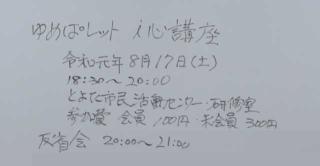 ゆめぱレット i心講座
令和元年8月17日(土)
18:30～20:00
とよた市民活動センター・研修室
参加費・会員100円・未会員300円
反省会 20:00～21:00